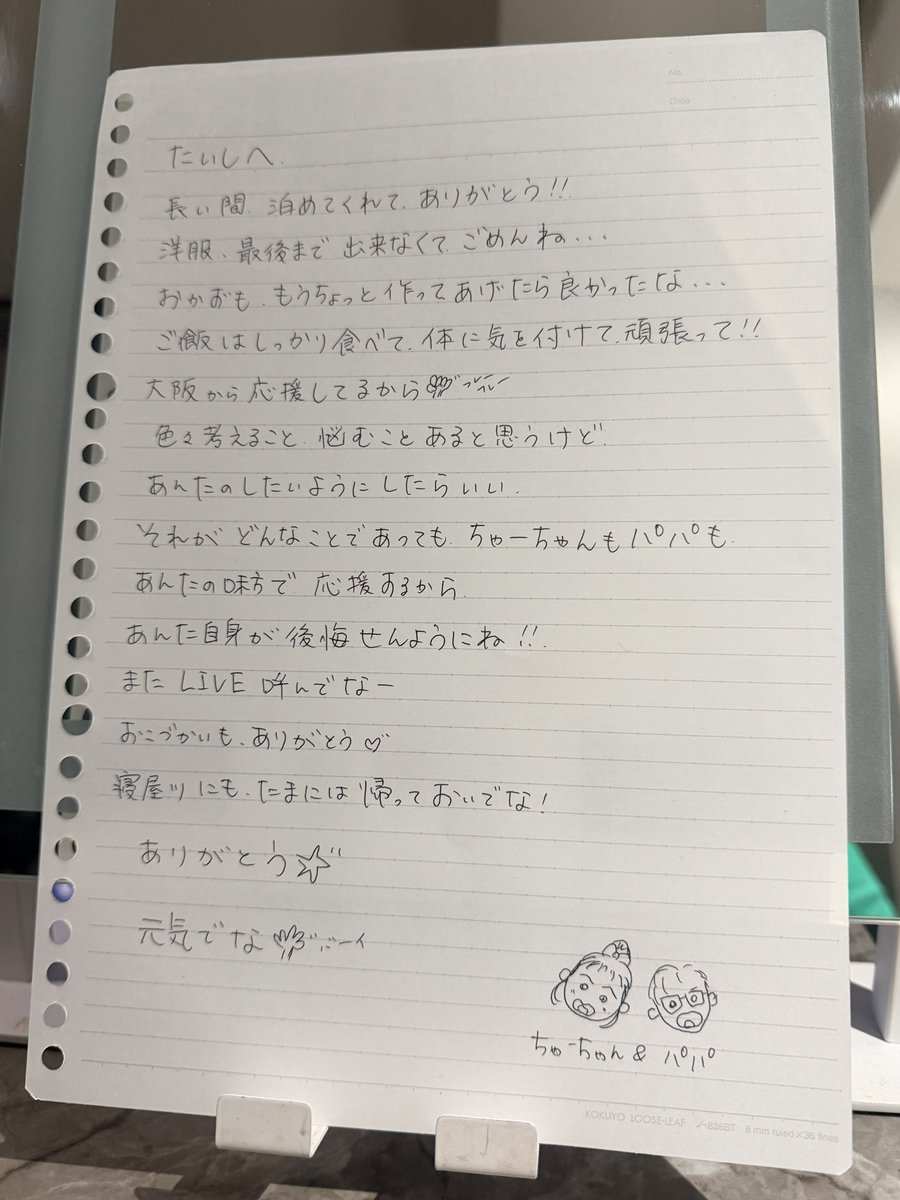 No.
Date
たいしへ.
長い間.泊めてくれて.ありがとう!!
洋服、最後まで出来なくて.ごめんね...
おかおも.もうちょっと作ってあげたら良かったな...
ご飯はしっかり食べて.体に気を付けて.頑張って!!
大阪から応援してるから フレーフレー
色々考えること.悩むことあると思うけど.
あんたのしたいようにしたらいい.
それがどんなことであっても.ちゃーちゃんもパパも.
あんたの味方で応援するから.
あんた自身が後悔せんようにね!!
またLIVE呼んでなー
おこづかいも.ありがとう♡
寝屋川にも.たまには帰っておいでな!
ありがとう☆
元気でな バーイ
ちゃーちゃん & パパ
KOKUYO LOOSE-LEAF ノ-836BT 6 mm ruled×36 lines